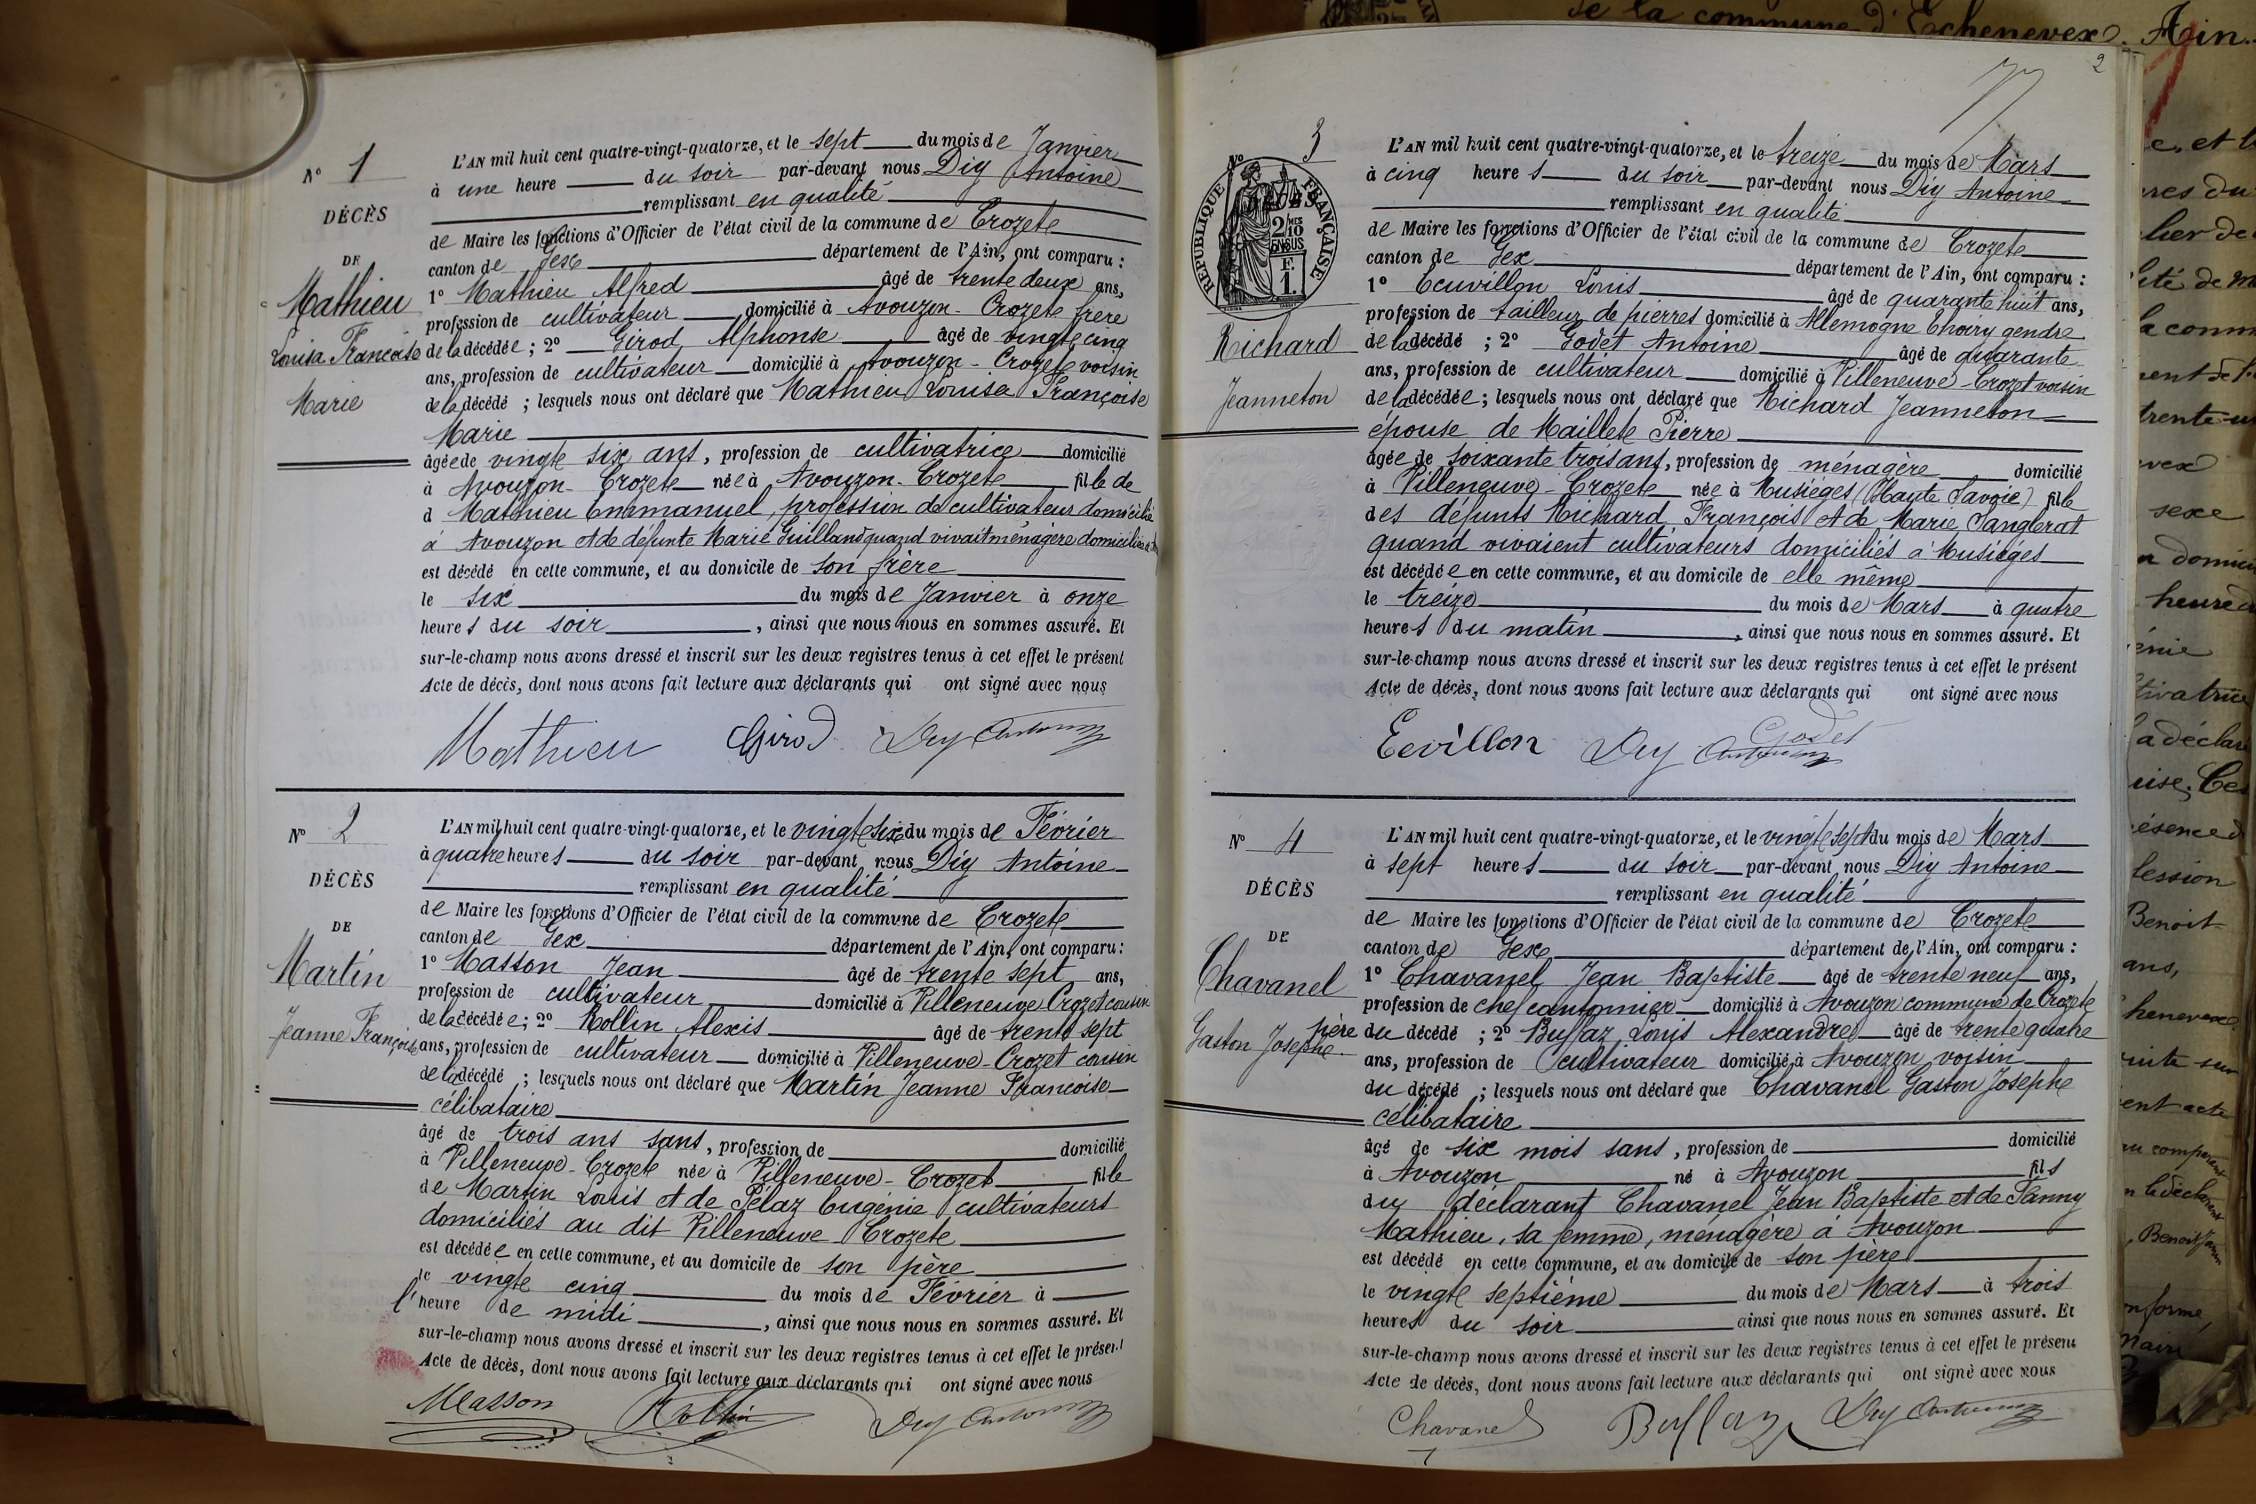 de la commune d'Echenevex. Ain.
N° 1
DÉCÈS
DE
Mathieu
Louisa Francoise
Marie
L'AN mil huit cent quatre-vingt-quatorze, et le sept du mois de Janvier
à une heure du soir par-devant nous Dry Antoine
remplissant en qualité
de Maire les fonctions d'Officier de l'état civil de la commune de Crozet
canton de Gex département de l'Ain, ont comparu :
1° Mathieu Alfred âgé de trente deux ans,
profession de cultivateur domicilié à Avouzon - Crozet frère
de la décédée ; 2° Girod Alphonse âgé de vingt cinq
ans, profession de cultivateur domicilié à Avouzon - Crozet voisin
de la décédé ; lesquels nous ont déclaré que Mathieu Louisa Françoise
Marie
âgée de vingt six ans, profession de cultivatrice domicilié
à Avouzon - Crozet née à Avouzon - Crozet fille de
d Mathieu Emmanuel, profession de cultivateur domicilié
à Avouzon et de défunte Marie Guilland quand vivait ménagère domiciliée
est décédé en cette commune, et au domicile de son frère
le six du mois de Janvier à onze
heures du soir, ainsi que nous nous en sommes assuré. Et
sur-le-champ nous avons dressé et inscrit sur les deux registres tenus à cet effet le présent
Acte de décès, dont nous avons fait lecture aux déclarants qui ont signé avec nous
Mathieu Girod Dry Antoine
N° 2
DÉCÈS
DE
Martin
Jeanne Françoise
L'AN mil huit cent quatre-vingt-quatorze, et le vingt six du mois de Février
à quatre heures du soir par-devant nous Dry Antoine
remplissant en qualité
de Maire les fonctions d'Officier de l'état civil de la commune de Crozet
canton de Gex département de l'Ain, ont comparu :
1° Masson Jean âgé de trente sept ans,
profession de cultivateur domicilié à Villeneuve Crozet cousin
de la décédée ; 2° Rollin Alexis âgé de trente sept
ans, profession de cultivateur domicilié à Villeneuve - Crozet cousin
de la décédé ; lesquels nous ont déclaré que Martin Jeanne Francoise
célibataire
âgé de trois ans sans, profession de domicilié
à Villeneuve - Crozet née à Villeneuve - Crozet fille
de Martin Louis et de Pélaz Eugénie cultivateurs
domiciliés au dit Villeneuve - Crozet
est décédée en cette commune, et au domicile de son père
le vingt cinq du mois de Février à
l'heure de midi, ainsi que nous nous en sommes assuré. Et
sur-le-champ nous avons dressé et inscrit sur les deux registres tenus à cet effet le présent
Acte de décès, dont nous avons fait lecture aux déclarants qui ont signé avec nous
Masson Rollin Dry Antoine
2
N° 3
RÉPUBLIQUE FRANÇAISE
2/10
EN SUS
F.
1.
Richard
Jeanneton
L'AN mil huit cent quatre-vingt-quatorze, et le treize du mois de Mars
à cinq heures du soir par-devant nous Dry Antoine
remplissant en qualité
de Maire les fonctions d'Officier de l'état civil de la commune de Crozet
canton de Gex département de l'Ain, ont comparu :
1° Ecuvillon Louis âgé de quarante huit ans,
profession de tailleur de pierres domicilié à Allemogne Thoiry gendre
de la décédé ; 2° Godet Antoine âgé de quarante
ans, profession de cultivateur domicilié à Villeneuve - Crozet voisin
de la décédée ; lesquels nous ont déclaré que Richard Jeanneton
épouse de Maillet Pierre
âgée de soixante trois ans, profession de ménagère domicilié
à Villeneuve - Crozet née à Musiéges (Haute Savoie) fille
des défunts Richard François et de Marie Sanglerat
quand vivaient cultivateurs domiciliés à Musiéges
est décédée en cette commune, et au domicile de elle même
le treize du mois de Mars à quatre
heures du matin, ainsi que nous nous en sommes assuré. Et
sur-le-champ nous avons dressé et inscrit sur les deux registres tenus à cet effet le présent
Acte de décès, dont nous avons fait lecture aux déclarants qui ont signé avec nous
Eevillon Dry Antoine Godet
N° 4
DÉCÈS
DE
Chavanel
Gaston Josephe
L'AN mil huit cent quatre-vingt-quatorze, et le vingt sept du mois de Mars
à sept heures du soir par-devant nous Dry Antoine
remplissant en qualité
de Maire les fonctions d'Officier de l'état civil de la commune de Crozet
canton de Gex département de l'Ain, ont comparu :
1° Chavanel Jean Baptiste âgé de trente neuf ans,
profession de chef cantonnier domicilié à Avouzon commune de Crozet
père du décédé ; 2° Buffaz Louis Alexandre âgé de trente quatre
ans, profession de cultivateur domicilié à Avouzon voisin
du décédé ; lesquels nous ont déclaré que Chavanel Gaston Josephe
célibataire
âgé de six mois sans, profession de domicilié
à Avouzon né à Avouzon fils
du déclarant Chavanel Jean Baptiste et de Fanny
Mathieu, sa femme, ménagère à Avouzon
est décédé en cette commune, et au domicile de son père
le vingt septième du mois de Mars à trois
heures du soir ainsi que nous nous en sommes assuré. Et
sur-le-champ nous avons dressé et inscrit sur les deux registres tenus à cet effet le présent
Acte de décès, dont nous avons fait lecture aux déclarants qui ont signé avec nous
Chavanel Buffaz Dry Antoine